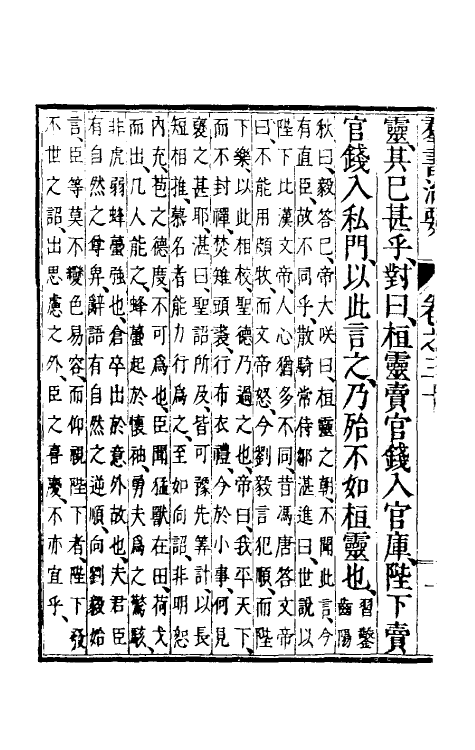 羣書治要 卷之三十
靈、其已甚乎、對曰、桓靈賣官錢入官庫、陛下賣
官錢入私門、以此言之、乃殆不如桓靈也、習鑿齒陽
秋曰、毅答已、帝大咲曰、桓靈之朝不聞此言、今
有直臣、故不同乎、散騎常侍鄒湛進曰、世說以
陛下比漢文帝、人心猶多不同、昔馮唐答文帝
曰、不能用頗牧、而文帝怒、今劉毅言犯順、而陛
下樂、以此相校、聖德乃過之也、帝曰、我平天下
而不封禪、焚雉頭裘、行布衣禮、今於小事、何見
襃之甚耶、湛曰、聖詔所及、皆可豫先筭計、以長
短相推、慕名者能力行爲之、至如向詔、非明恕
內充、苞之德度、不可爲也、臣聞猛獸在田、荷戈
而出、凡人能之、蜂蠆起於懷袖、勇夫爲之驚駭、
非虎弱蜂蠆強也、倉卒出於意外故也、夫君臣
有自然之尊卑、辭語有自然之逆順、向劉毅始
言、臣等莫不變色易容、而仰視陛下者、陛下發
不世之詔、出思慮之外、臣之喜慶、不亦宜乎、